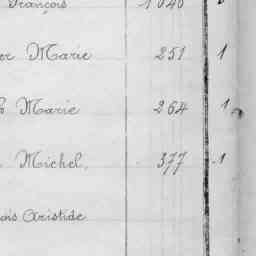 François 1040
er Marie 251 1
Marie 264 1
Michel, 377 1
ois Aristide